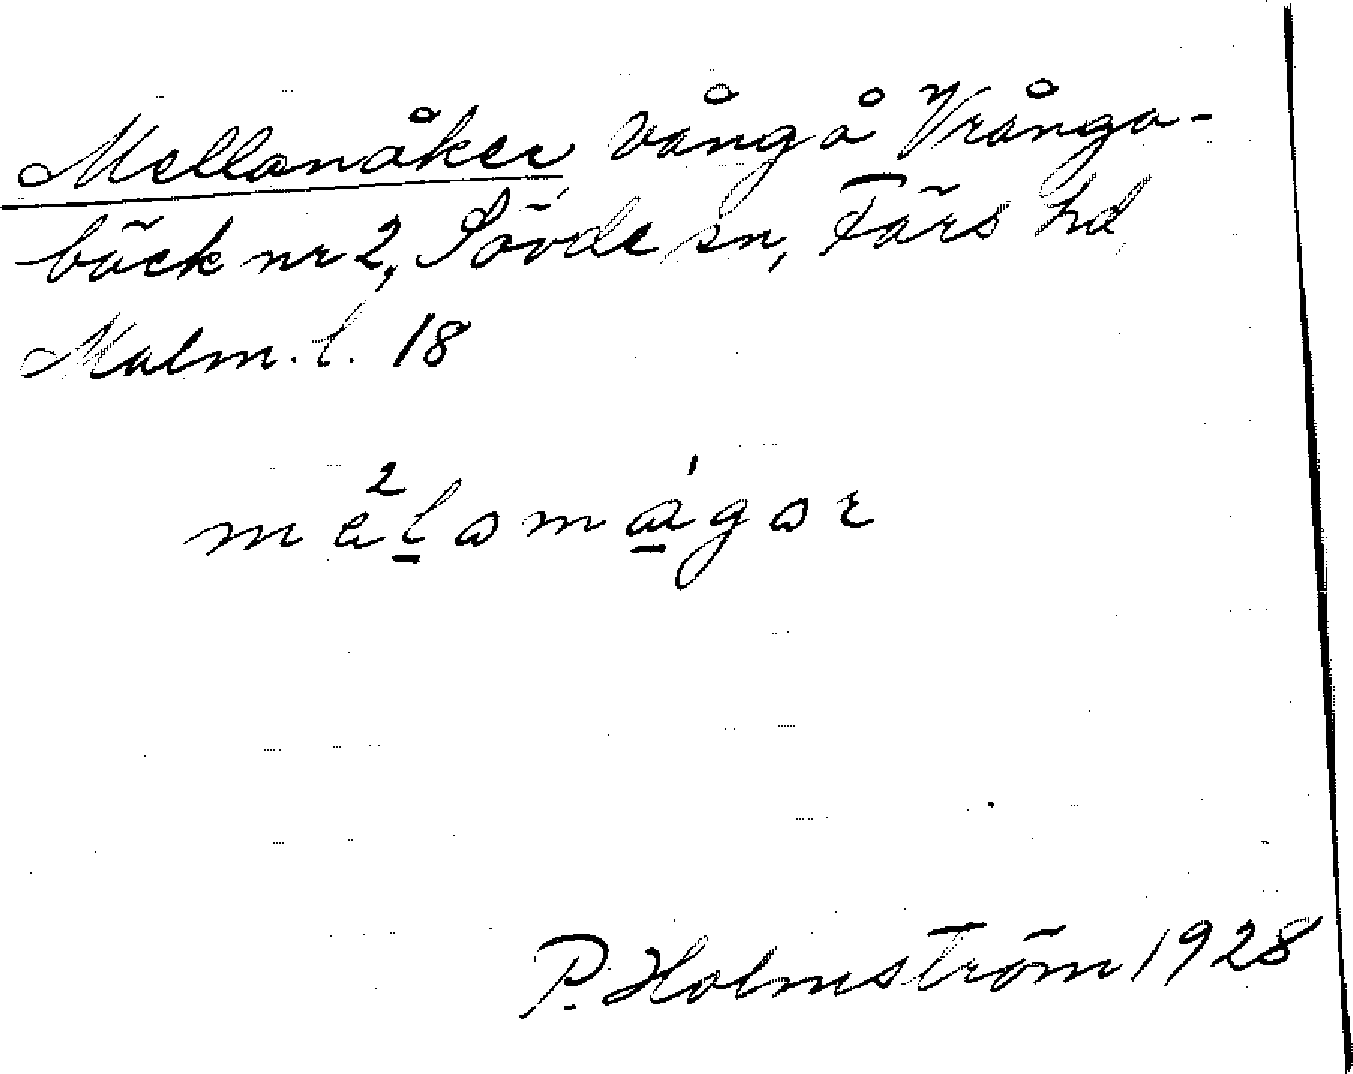 Mellanåker vång å Vrånga-
bäck nr 2, Sövde sn, Färs hd
Malm. l. 18
P. Holmström 1928